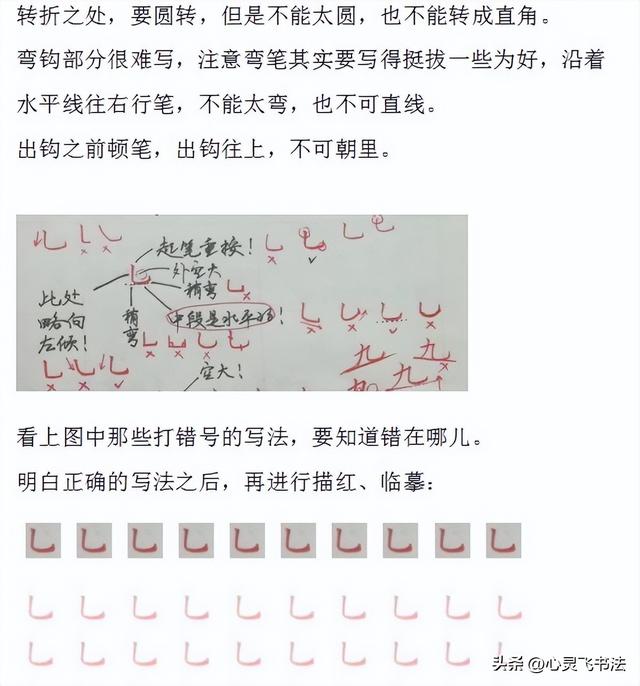 转折之处，要圆转，但是不能太圆，也不能转成直角。
弯钩部分很难写，注意弯笔其实要写得挺拔一些为好，沿着
水平线往右行笔，不能太弯，也不可直线。
出钩之前顿笔，出钩往上，不可朝里。
起笔重按！
外空大
稍弯
此处
略向
左倾！
稍弯
中段是水平的！
空大！
九 九
九
看上图中那些打错号的写法，要知道错在哪儿。
明白正确的写法之后，再进行描红、临摹：
头条 @心灵飞书法